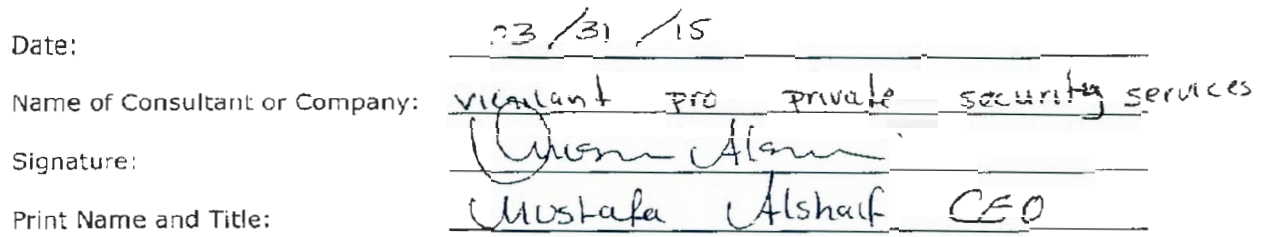 Date: 03/31/15
Name of Consultant or Company: vigilant pro private security services
Signature:
Print Name and Title: Mustafa Alshaif CEO